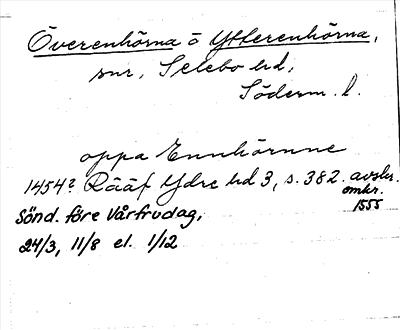 Överenhörna o Ytterenhörna,
snr, Selebo hd,
Söderm. l.
oppa Ennhörnne
1454? Rääf Ydre hd 3, s. 382. avskr.
omkr.
1555
Sönd. före Vårfrudag,
24/3, 11/8 el. 1/12